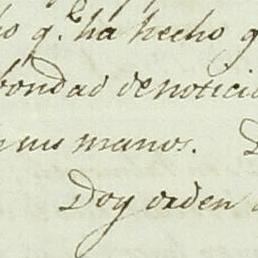 q.e ha hecho
bondad de noticia
mis manos.
Doy orden